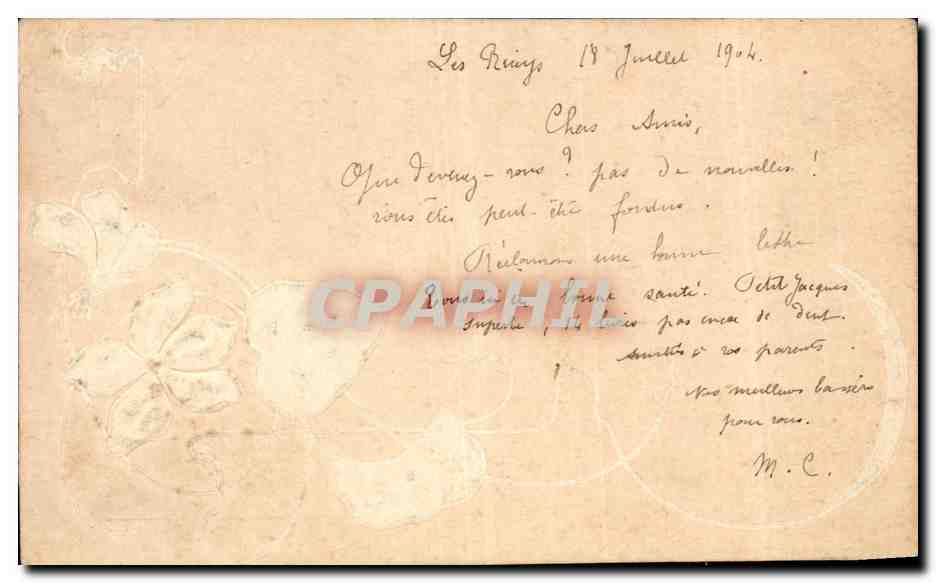 Les Riceys 18 Juillet 1904.
Chers Amis,
Que devenez-vous? pas de nouvelles!
vous êtes peut-être fondus.
Réclamons une bonne lettre
Tous en bonne santé. Petit Jacques
superbe, 14 livres pas encore de dent.
Amitiés à vos parents.
Nos meilleurs baisers
pour vous.
M. C.
CPAPHIL